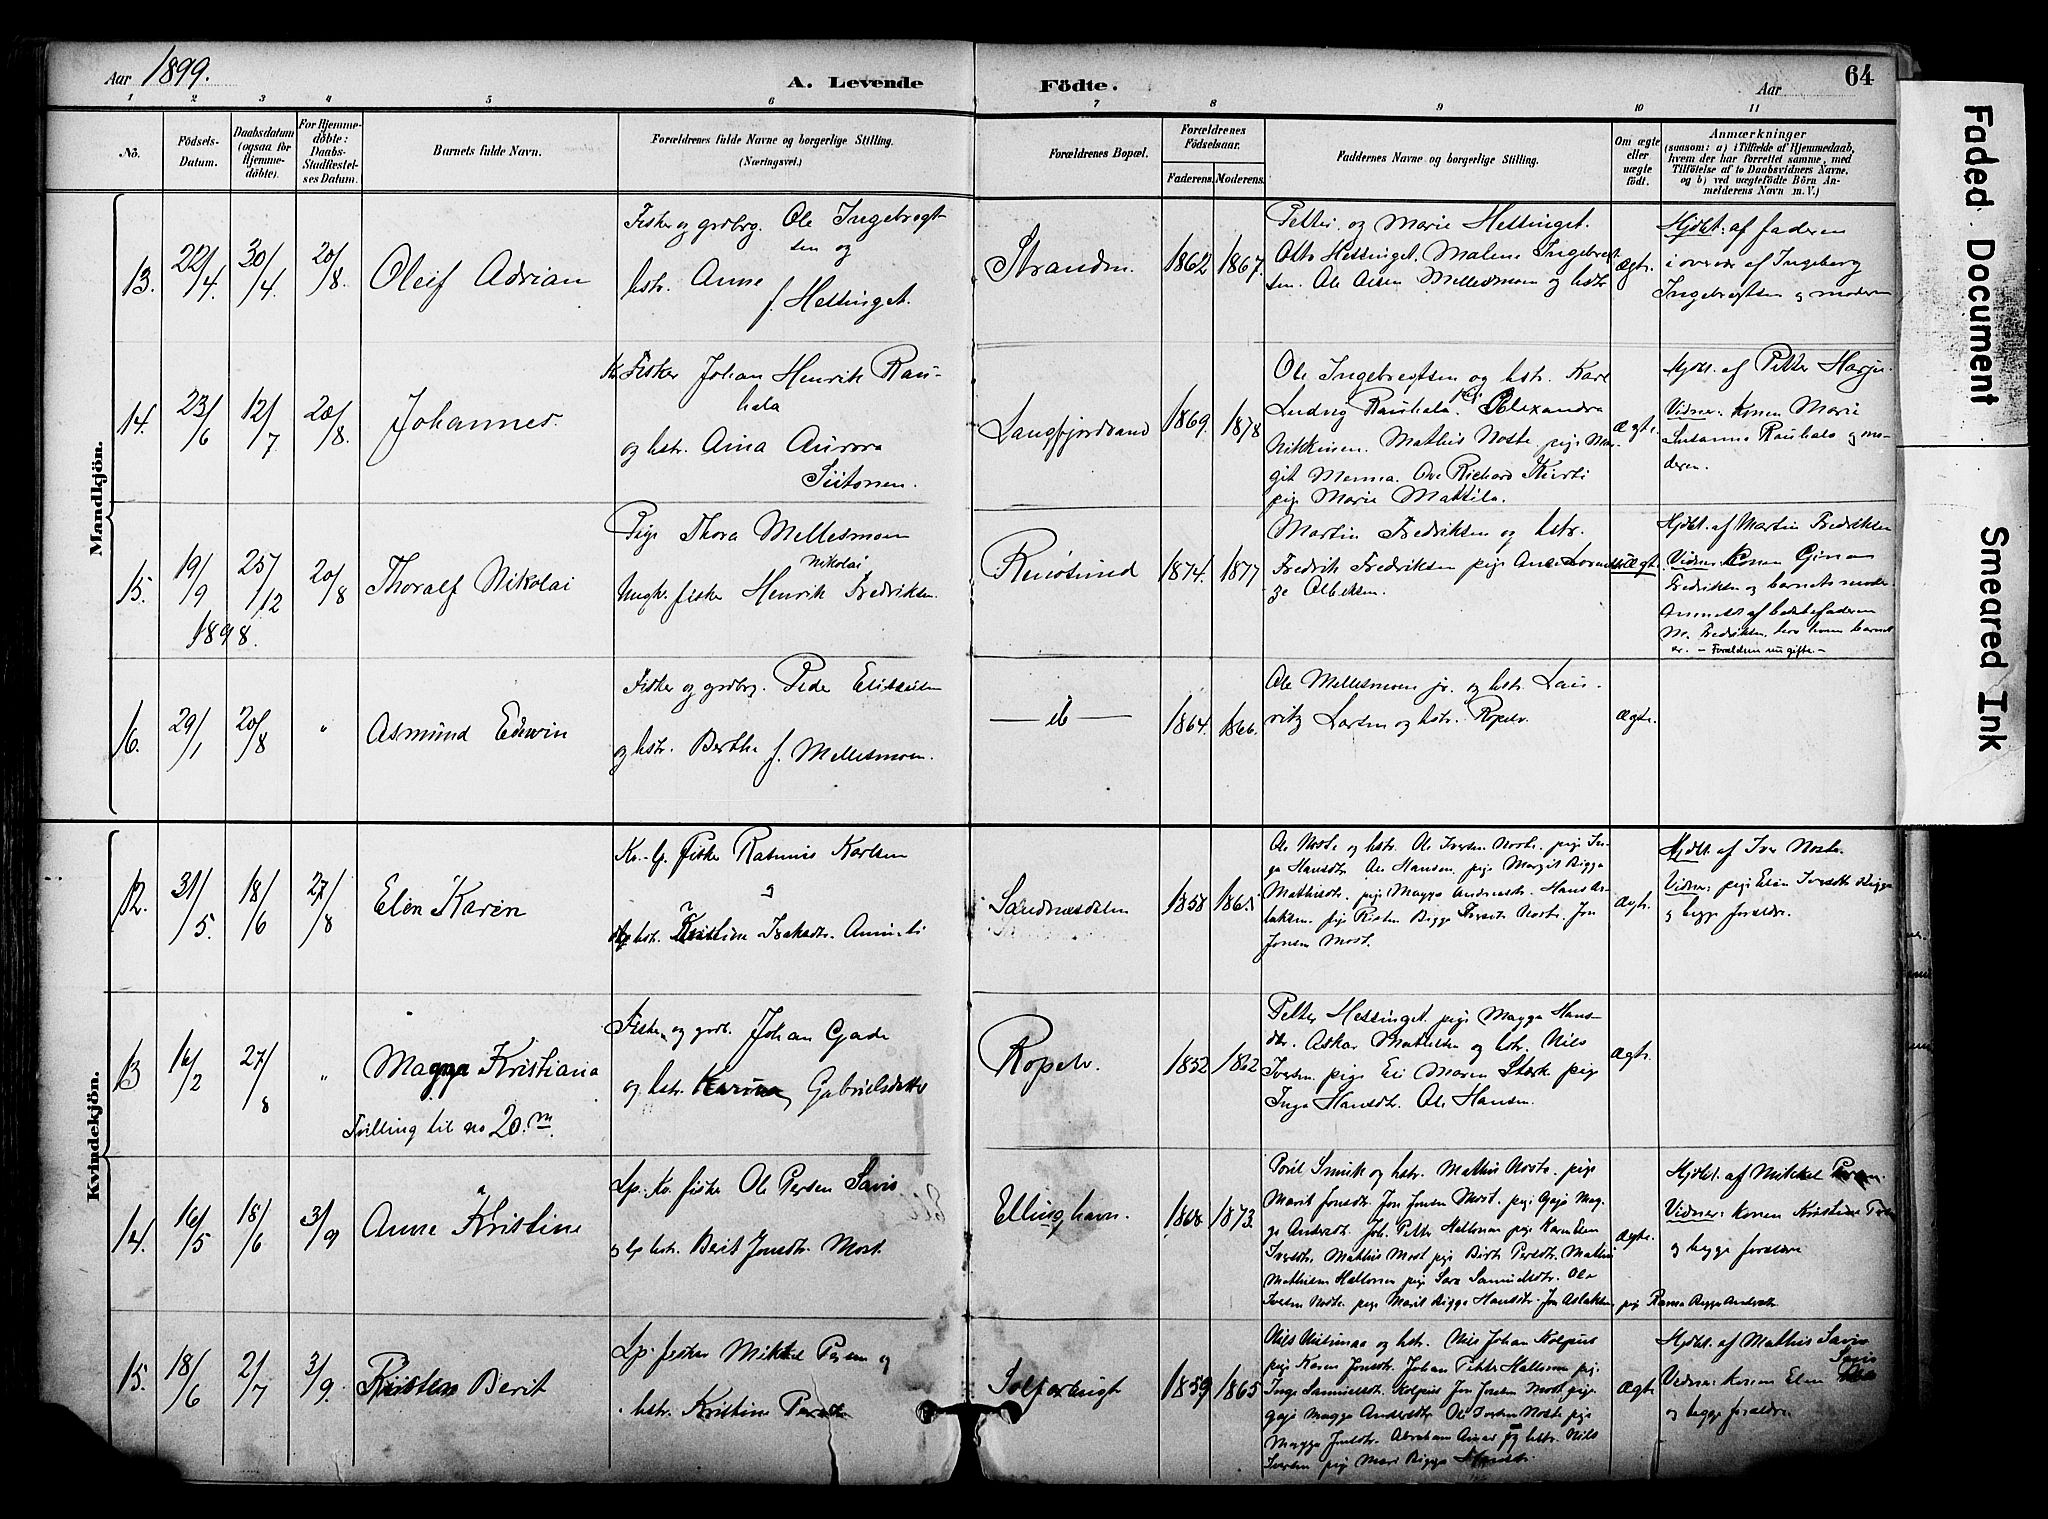 Aar 1899.
A. Levende
Födte.
Aar
64
1 2 3 4 5 6 7 8 9 10 11
No.
Födsels-Datum.
Daabsdatum (ogsaa for Hjemmedöbte).
For Hjemmedöbte: Daabs-Stadfæstelses Datum.
Barnets fulde Navn.
Forældrenes fulde Navne og borgerlige Stilling.
(Næringsvei.)
Forældrenes Bopæl.
Forældrenes Födselsaar.
Faderens. Moderens.
Faddernes Navne og borgerlige Stilling.
Om ægte eller uægte födt.
Anmærkninger
(saasom: a) i Tilfælde af Hjemmedaab,
hvem der har forrettet samme, med
Tilföielse af to Daabsvidners Navne,
og b) ved uægtefödte Börn Anmelderens Navn m. V.)
Mandkjön.
13. 22/4. 30/4 20/8. Oleif Adrian
Fisker og grdbrg. Ole Ingebregt-
sen og
hstr. Anne
f. Hessinget.
Strandn. 1862 1867.
Petter og Marie Hessinget.
Otto Hessinget. Malene Ingebregt-
sen. Ole Olsen Mellesmoen og hstr
Ægte.
Hjdbt. af faderen
i overvær af Ingeborg
Ingebregtsen og moderen
14. 23/6 12/7 20/8. Johannes.
Kv. Fisker Johan Henrik Rau-
hala
og hstr. Aina Aurora
Siitonen.
Langfjordvand 1869. 1878
Ole Ingebregtsen og hstr. Karl
Ludvig Rauhala. pige Alexandra
Nikkinen. Mathis Noste. pige Mar-
git Menna. Ole Richard Kurti
pige Marie Mattila.
ægte.
Hjdbt. af Petter Harju.
Vidner: Konen Marie
Susanna Rauhala og mo-
deren.
15. 19/9 25/12 1898. 20/8 Thoralf Nikolai
Pige Thora Mellesmoen
Ungkr. fisker Henrik Nikolai Fredriksen.
Renøsund 1874. 1877
Martin Fredriksen og hstr.
Fredrik Fredriksen pige Ane
Uægt.
Hjdbt. af Martin Fredriksen
Vidner: Konen
Fredriksen og barnets moder
Anmeldt af bedstefaderen
M. Fredriksen, hos hvem barnet
er. - Forældrene nu gifte. -
16. 29/1 20/8 " Asmund Edwin
Fisker og grdbrg. Peder
og hstr. Berthe f. Mellesmoen.
— ib — 1864. 1866.
Ole Mellesmoen jr. og hstr. Lau-
ritz Larsen og hstr. Ropelv.
Ægte.
Kvindekjön.
12. 31/5. 18/6 27/8 Elen Karen
Kv. lp. fisker Rasmus Karlsen
og
lp hstr. Kristine Isaksdtr.
Sandnesdalen 1858 1865
Ole Noste og hstr. Ole Iversen Noste. pige In-
ga Hansdtr. Ole Hansen. pige Margit Bigga
Mathisdtr. pige Magga Andersdtr. Hans As-
laksen. pige Risten Bigga Iversdtr Noste. Jon
Jonsen Most.
Ægte.
Hjdbt. af Iver Noste.
Vidner: pige Elen Iversdtr Bigga
og begge forældre.
13 16/2 27/8 " Magga Kristiana
Tvilling til no 20.m.
Fisker og grdb. Johan Gade
og hstr. Karen Gabrielsdatter
Ropelv. 1852 1862
Petter Hessinget. pige Magga Hans-
dtr. Askar Mathisen og hstr. Nils
Iversen. pige Eli Maren Sterk pige
Inga Hansdtr. Ole Hansen.
Ægte.
14. 16/5 18/6 3/9 Anne Kristine
Lp. Kv. fisker Ole Persen Savio
og lp hstr. Berit Jonsdtr. Most.
Ellingshavn. 1868 1873.
Poril Smuk og hstr. Mathis Noste. pige
Marit Jonsdtr. Jon Jonsen Most. pige Gaje Mag-
ga Andersdtr. Joh. Petter Haltonen pige Karen Elen
Iversdtr. Mathis Most pige Birte Persdtr. Mathis
Mathisen Haltonen pige Sara Samuelsdtr. Ole
Iversen Noste. pige Marit Bigga Hansdtr. Jon Aslaksen. pige Bigga Andersdtr
Ægte.
Hjdbt. af Mikkel Persen.
Vidner: konen Kristine
og begge forældre
15. 18/6 2/7 3/9. Risten Berit
Lp. fisker Mikkel Persen og
hstr. Kristine Persdtr
1859 1865
Nils og hstr. Nils Johan Kolpus
pige Karen Jonsdtr. Johan Petter Haltonen pige
Inga Samuelsdtr. Kolpus Jon Jonsen Most. pige
Gaje Magga Andersdtr Ole Iversen Noste pige
Magga Jonsdtr. Abraham og hstr. Nils
Iversen pige Mari Bigga Hansdtr.
Ægte
Hjdbt. af Mathis Savio
Vidner: konen Elen Savio
og begge forældre
Faded Document
Smeared Ink